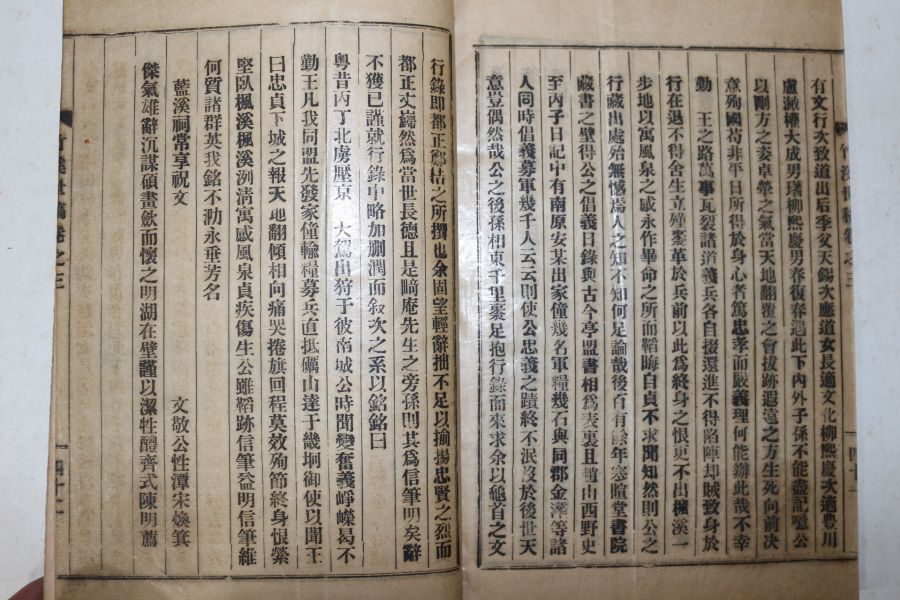 有文行次致道出后季父天錫次應道女長適文化柳熙慶次適豊川
盧漵樺大成男璿柳熙慶男春復春遇此下內外子孫不能盡記噫公
以剛方之姿卓犖之氣當天地翻覆之會拔跡遐遠之方生死向前決
意殉國苟非平日所得於身心者篤忠孝而嚴義理何能辦此哉不幸
勤 王之路萬事瓦裂諸道義兵各自掇還進不得陷陣却賊致身於
行在退不得舍生立殣裹革於兵前以此爲終身之恨更不出楓溪一
步地以寓風泉之感永作畢命之所而韜晦自貞不求聞知然則公之
行藏出處殆無憾焉人之知不知何足論哉後百有餘年寒暄堂書院
藏書之壁得公之倡義日錄與古今亭盟書相爲表裏且趙山西野史
至丙子日記中有南原安某出家僮幾名軍糧幾石與同郡金澕等諸
人同時倡義募軍幾千人云云則使公忠義之蹟終不泯沒於後世天
意豈偶然哉公之後孫相東千里裹足抱行錄而來求余以龜首之文
行錄卽都正鄭桔之所撰也余固望輕辭拙不足以揄揚忠賢之烈而
都正丈鷸然爲當世長德且是畸庵先生之旁孫則其爲信筆明矣辭
不獲已謹就行錄中略加刪潤而叙次之系以銘銘曰
粤昔丙丁北虜壓京 大駕出狩于彼南城公時聞變奮義崢嶸曷不
勤王凡我同盟先發家僮輸糧募兵直抵礪山達于畿坰御使以聞王
曰忠貞下城之報天地翻傾相向痛哭捲旗回程莫效殉節終身恨縈
堅臥楓溪楓溪洌清寓感風泉貞疾傷生公雖韜跡信筆益明信筆維
何質諸群英我銘不泐永垂芳名
藍溪祠常享祝文 文敬公性潭宋煥箕
傑氣雄辭沉謀碩畫歛而懷之明湖在壁謹以潔牲醴齊式陳明薦